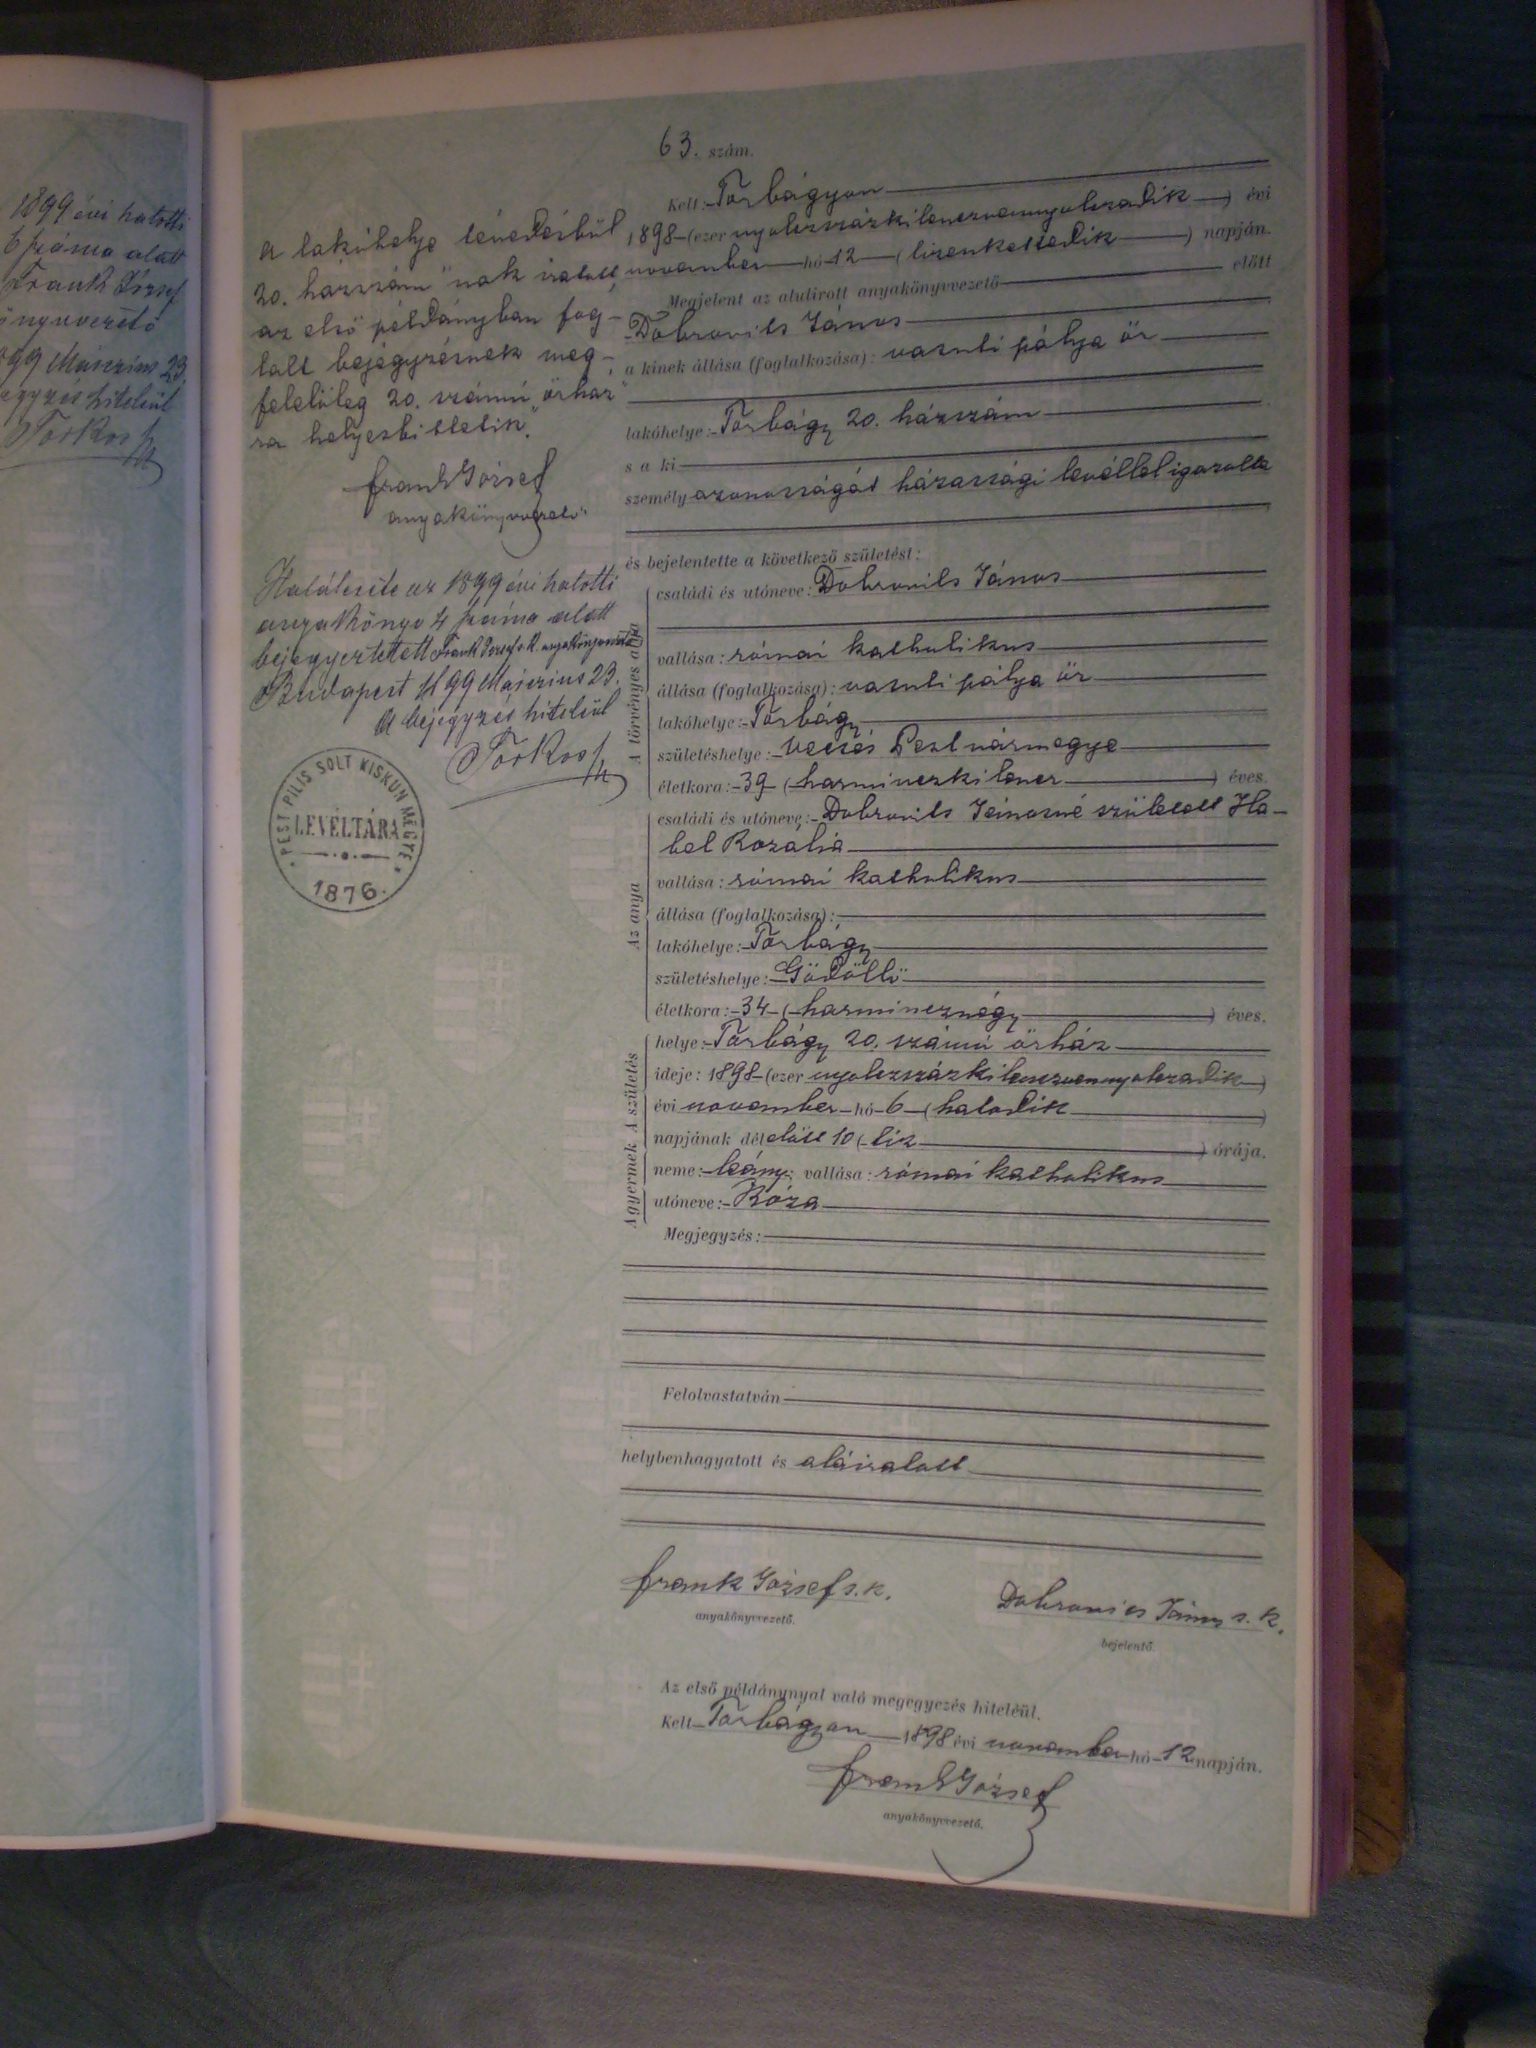 1899 évi halotti
6 száma alatt
Frank József
1899 Március 23
hiteléül
Torkos
63. szám.
Kelt: Torbágyon
1898 (ezer nyolczszázkilenczvennyolczadik) évi
november hó 12 (tizenkettedik) napján.
Megjelent az alulirott anyakönyvvezető előtt
Dobrovits János
a kinek állása (foglalkozása): vasuti pálya őr
lakóhelye: Torbágy 20. házszám
s a ki
személyazonosságát házassági levéllel igazolta
és bejelentette a következő születést:
A törvényes atya
családi és utóneve: Dobrovits János
vallása: római katholikus
állása (foglalkozása): vasuti pálya őr
lakóhelye: Torbágy
születéshelye: Vecsés Pest vármegye
életkora: 39 (harminczkilencz) éves.
Az anya
családi és utóneve: Dobrovits Jánosné született Ha-
bel Rozália
vallása: római katholikus
állása (foglalkozása):
lakóhelye: Torbágy
születéshelye: Gödöllő
életkora: 34 (harmincznégy) éves.
A gyermek A születés
helye: Torbágy 20. számú őrház
ideje: 1898 (ezer nyolczszázkilenczvennyolczadik)
évi november hó 6 (hatodik)
napjának délelőtt 10 (tiz) órája.
neme: leány; vallása: római katholikus
utóneve: Róza
Megjegyzés:
Felolvastatván
helybenhagyatott és aláiratott
Frank József s. k.
anyakönyvvezető.
Dobrovics János s. k.
bejelentő.
Az első példánynyal való megegyezés hiteléül.
Kelt Torbágyon 1898 évi november hó 12 napján.
Frank József
anyakönyvvezető.
A lakóhelye tévedésből
20. házszám "nak iratott,
az első példányban fog-
lalt bejegyzésnek meg-
felelőleg 20. számú "őrház"
ra helyesbittetik.
Frank József
anyakönyvvezető
Halálesete az 1899 évi halotti
anyakönyv 4 száma alatt
bejegyeztetett Frank József s. k. anyakönyvvezető
Budapest 1899 Március 23.
A bejegyzés hiteléül
Torkos
PEST PILIS SOLT KISKUN MEGYE
LEVÉLTÁRA
1876.